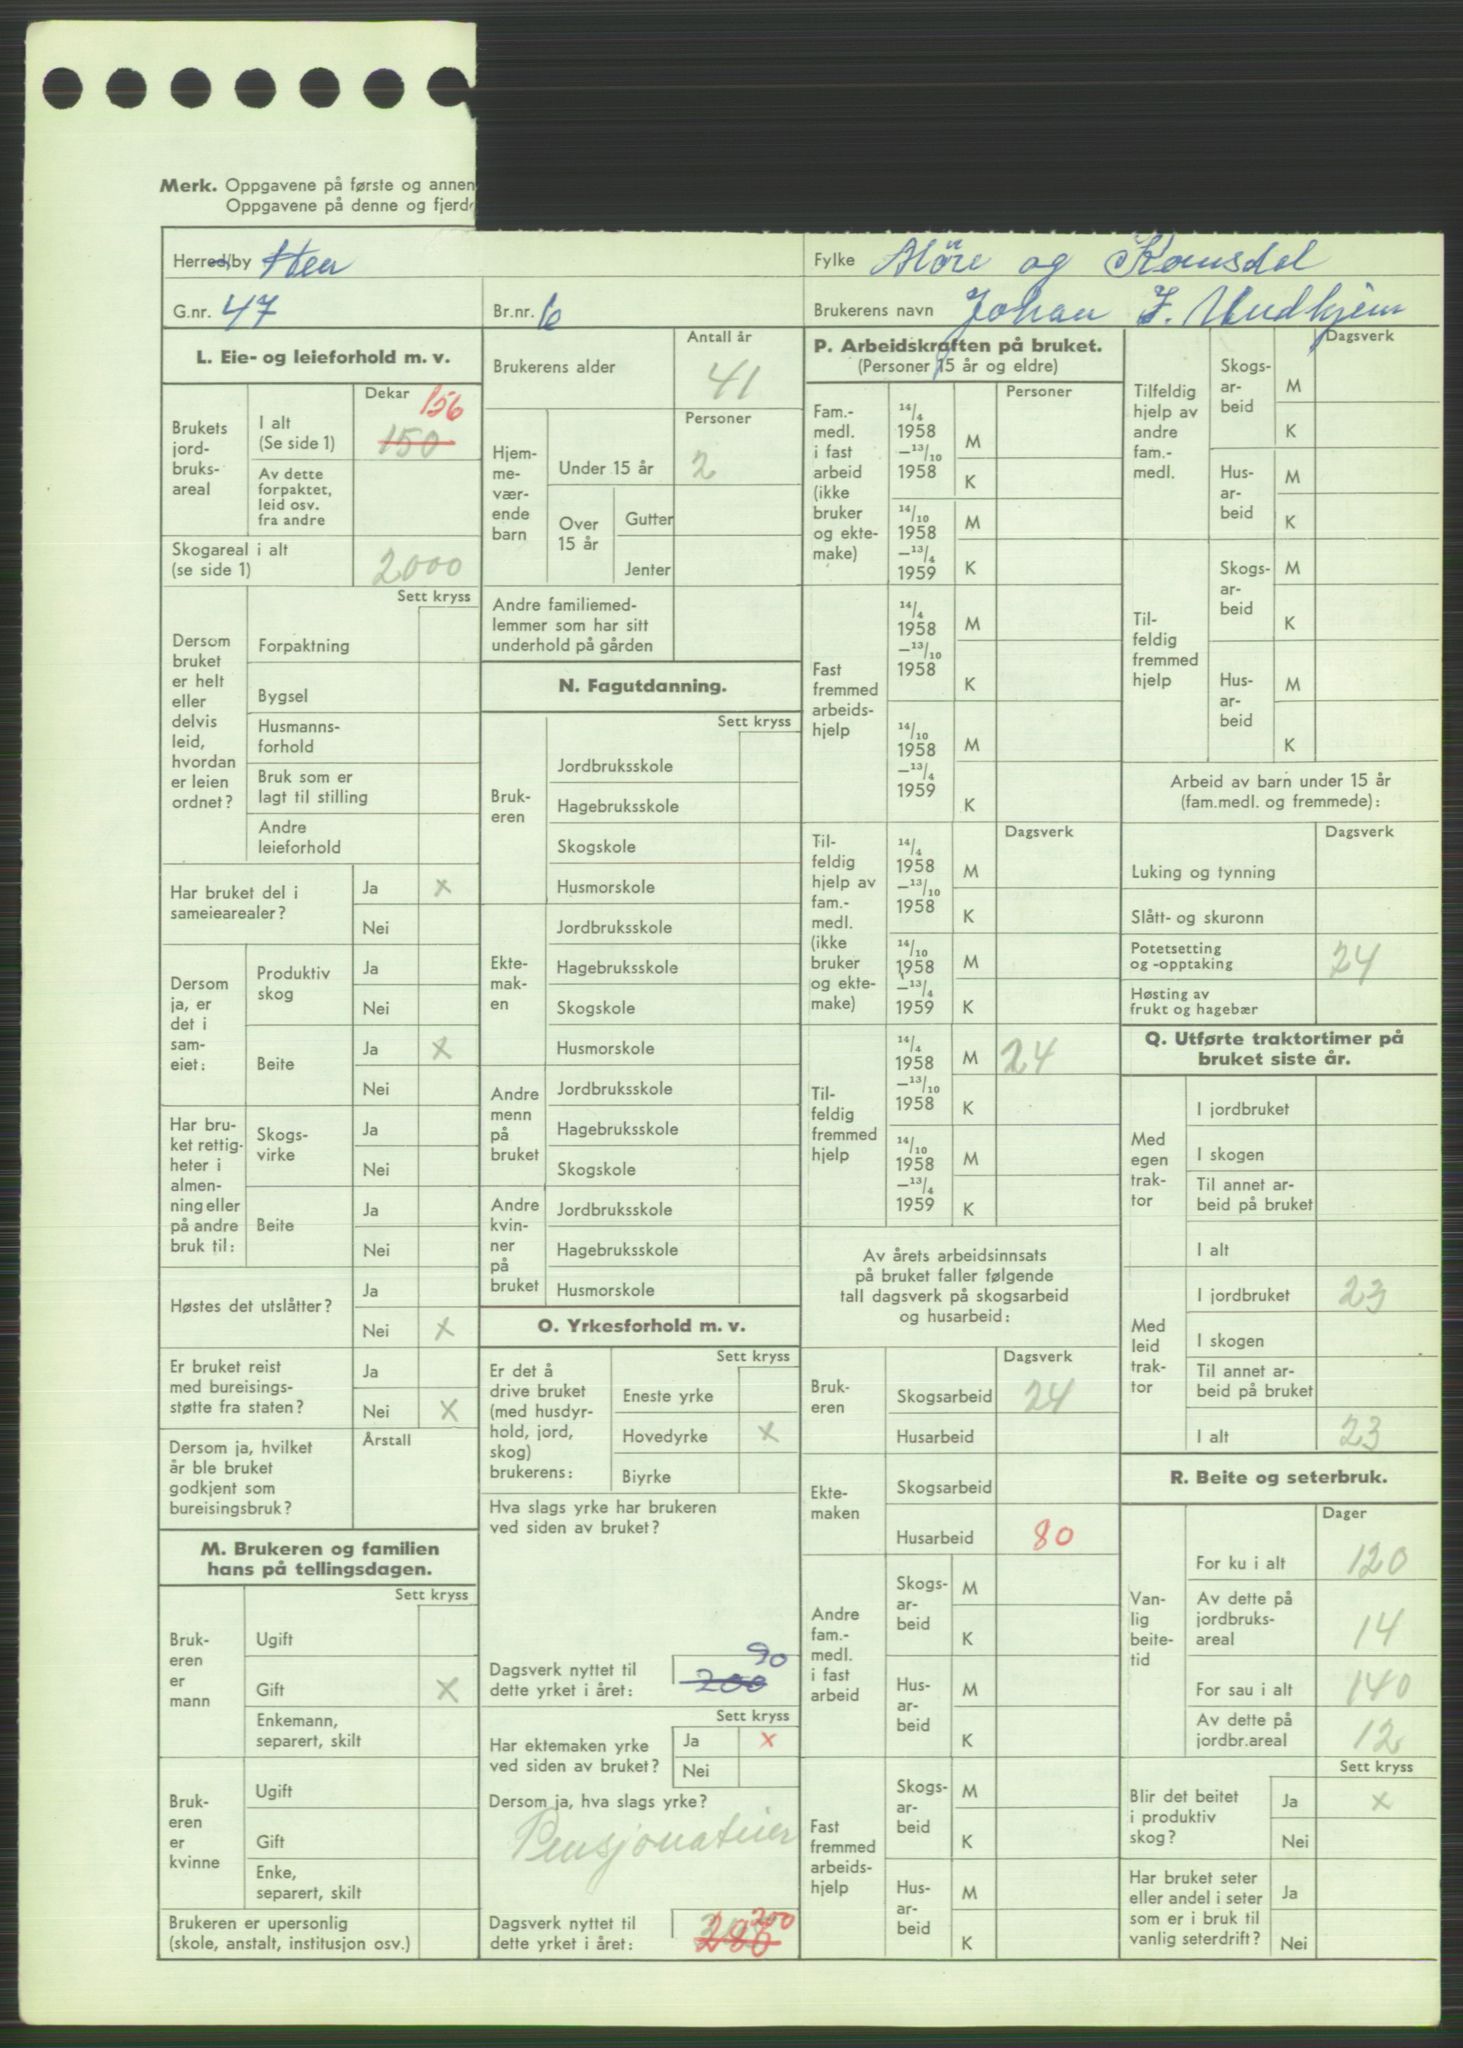 Merk. Oppgavene på første og annen
Oppgavene på denne og fjerd
Herred/by Hen
Fylke Möre og Romsdal
G.nr. 47
Br.nr. 6
Brukerens navn Johan J. Undhjem
L. Eie- og leieforhold m. v.
Dekar
Brukets jord-bruks-areal
I alt (Se side 1) 150 156
Av dette forpaktet, leid osv. fra andre
Skogareal i alt (se side 1) 2000
Sett kryss
Dersom bruket er helt eller delvis leid, hvordan er leien ordnet?
Forpaktning
Bygsel
Husmanns-forhold
Bruk som er lagt til stilling
Andre leieforhold
Har bruket del i sameiearealer?
Ja x
Nei
Dersom ja, er det i sam-eiet:
Produktiv skog
Ja
Nei
Beite
Ja x
Nei
Har bru-ket rettig-heter i almen-ning eller på andre bruk til:
Skogs-virke
Ja
Nei
Beite
Ja
Nei
Høstes det utslåtter?
Ja
Nei x
Er bruket reist med bureisings-støtte fra staten?
Ja
Nei x
Dersom ja, hvilket år ble bruket godkjent som bureisingsbruk?
Årstall
M. Brukeren og familien hans på tellingsdagen.
Sett kryss
Bruk-eren er mann
Ugift
Gift x
Enkemann, separert, skilt
Bruk-eren er kvinne
Ugift
Gift
Enke, separert, skilt
Brukeren er upersonlig (skole, anstalt, institusjon osv.)
Antall år
Brukerens alder 41
Personer
Hjem-me-vær-ende barn
Under 15 år 2
Over 15 år
Gutter
Jenter
Andre familiemed-lemmer som har sitt underhold på gården
N. Fagutdanning.
Sett kryss
Bruk-eren
Jordbruksskole
Hagebruksskole
Skogskole
Husmorskole
Ekte-mak-en
Jordbruksskole
Hagebruksskole
Skogskole
Husmorskole
Andre menn på bruket
Jordbruksskole
Hagebruksskole
Skogskole
Andre kvin-ner på bruket
Jordbruksskole
Hagebruksskole
Husmorskole
O. Yrkesforhold m. v.
Sett kryss
Er det å drive bruket (med husdyr-hold, jord, skog) brukerens:
Eneste yrke
Hovedyrke x
Biyrke
Hva slags yrke har brukeren ved siden av bruket?
Dagsverk nyttet til dette yrket i året: 200 90
Sett kryss
Har ektemaken yrke ved siden av bruket?
Ja x
Nei
Dersom ja, hva slags yrke?
Pensjonateier
Dagsverk nyttet til dette yrket i året: 200
P. Arbeidskraften på bruket.
(Personer 15 år og eldre)
Personer
Fam.-medl. i fast arbeid (ikke bruker og ekte-make)
14/4 1958 –13/10 1958
M
K
14/10 1958 –13/4 1959
M
K
Fast fremmed arbeids-hjelp
14/4 1958 –13/10 1958
M
K
14/10 1958 –13/4 1959
M
K
Dagsverk
Til-feldig hjelp av fam.-medl. (ikke bruker og ekte-make)
14/4 1958 –13/10 1958
M
K
14/10 1958 –13/4 1959
M
K
Til-feldig fremmed hjelp
14/4 1958 –13/10 1958
M 24
K
14/10 1958 –13/4 1959
M
K
Av årets arbeidsinnsats på bruket faller følgende tall dagsverk på skogsarbeid og husarbeid:
Dagsverk
Bruk-eren
Skogsarbeid 24
Husarbeid
Ekte-maken
Skogsarbeid
Husarbeid 80
Andre fam.-medl. i fast arbeid
Skogs-ar-beid
M
K
Hus-ar-beid
M
K
Fast fremmed arbeids-hjelp
Skogs-ar-beid
M
K
Hus-ar-beid
M
K
Dagsverk
Tilfeldig hjelp av andre fam.-medl.
Skogs-ar-beid
M
K
Hus-ar-beid
M
K
Til-feldig fremmed hjelp
Skogs-ar-beid
M
K
Hus-ar-beid
M
K
Arbeid av barn under 15 år (fam.medl. og fremmede):
Dagsverk
Luking og tynning
Slått- og skuronn
Potetsetting og -opptaking 24
Høsting av frukt og hagebær
Q. Utførte traktortimer på bruket siste år.
Med egen trak-tor
I jordbruket
I skogen
Til annet ar-beid på bruket
I alt
Med leid trak-tor
I jordbruket 23
I skogen
Til annet ar-beid på bruket
I alt 23
R. Beite og seterbruk.
Dager
Van-lig beite-tid
For ku i alt 120
Av dette på jordbruks-areal 14
For sau i alt 140
Av dette på jordbr.areal 12
Sett kryss
Blir det beitet i produktiv skog?
Ja x
Nei
Har bruket seter eller andel i seter som er i bruk til vanlig seterdrift?
Ja
Nei